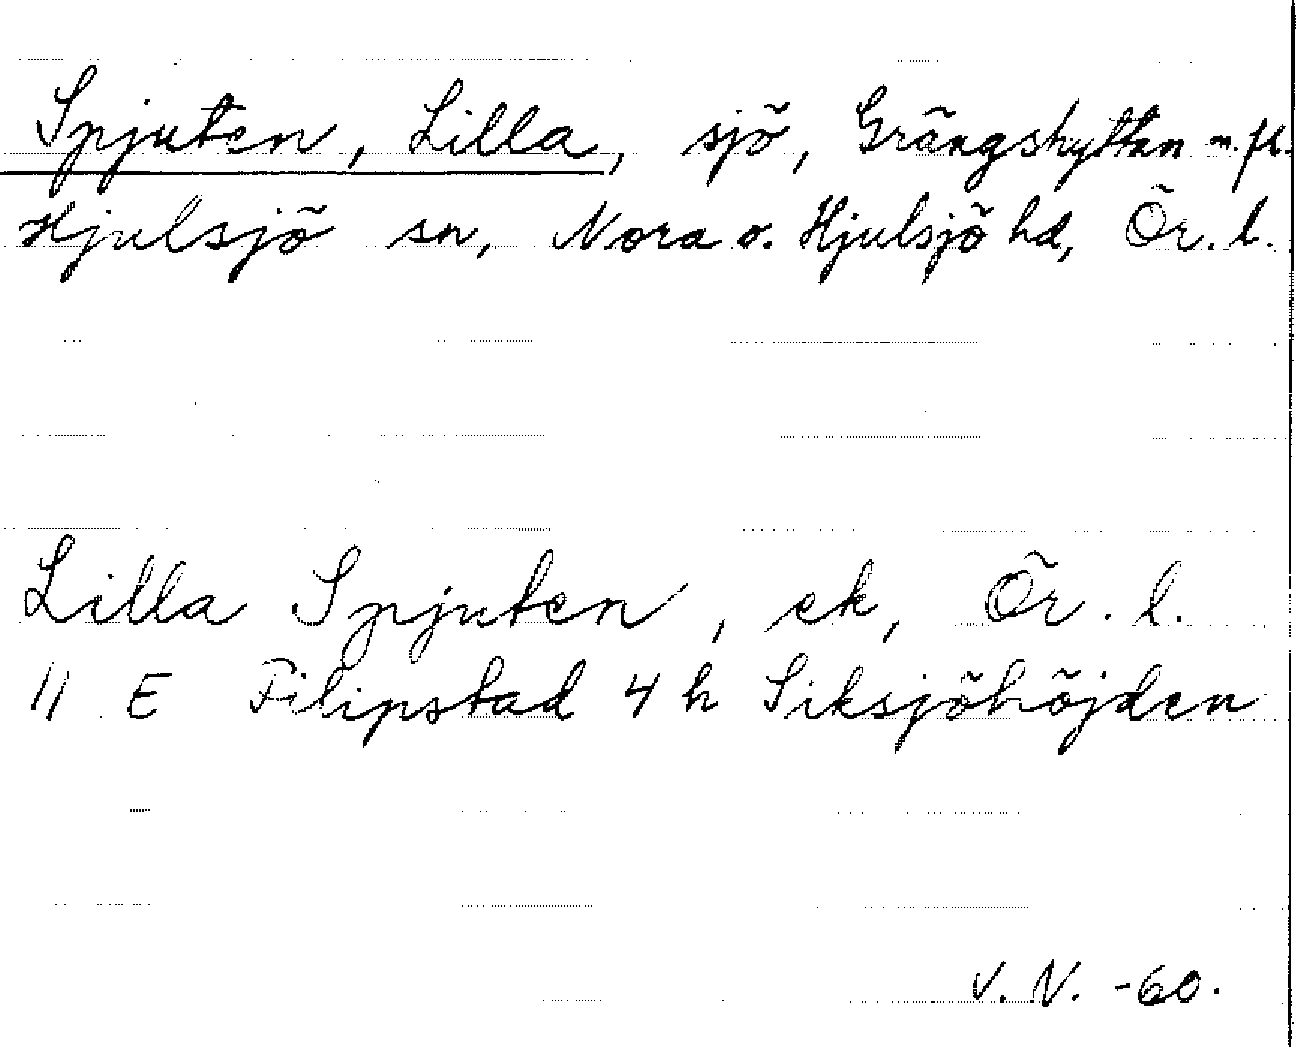 Spjuten, Lilla, sjö, Grängshyttan m.fl.
Hjulsjö sn, Nora o. Hjulsjö hd, Ör. l.
Lilla Spjuten, ek, Ör. l.
11 E Filipstad 4 h Siksjöhöjden
V. N. -60.